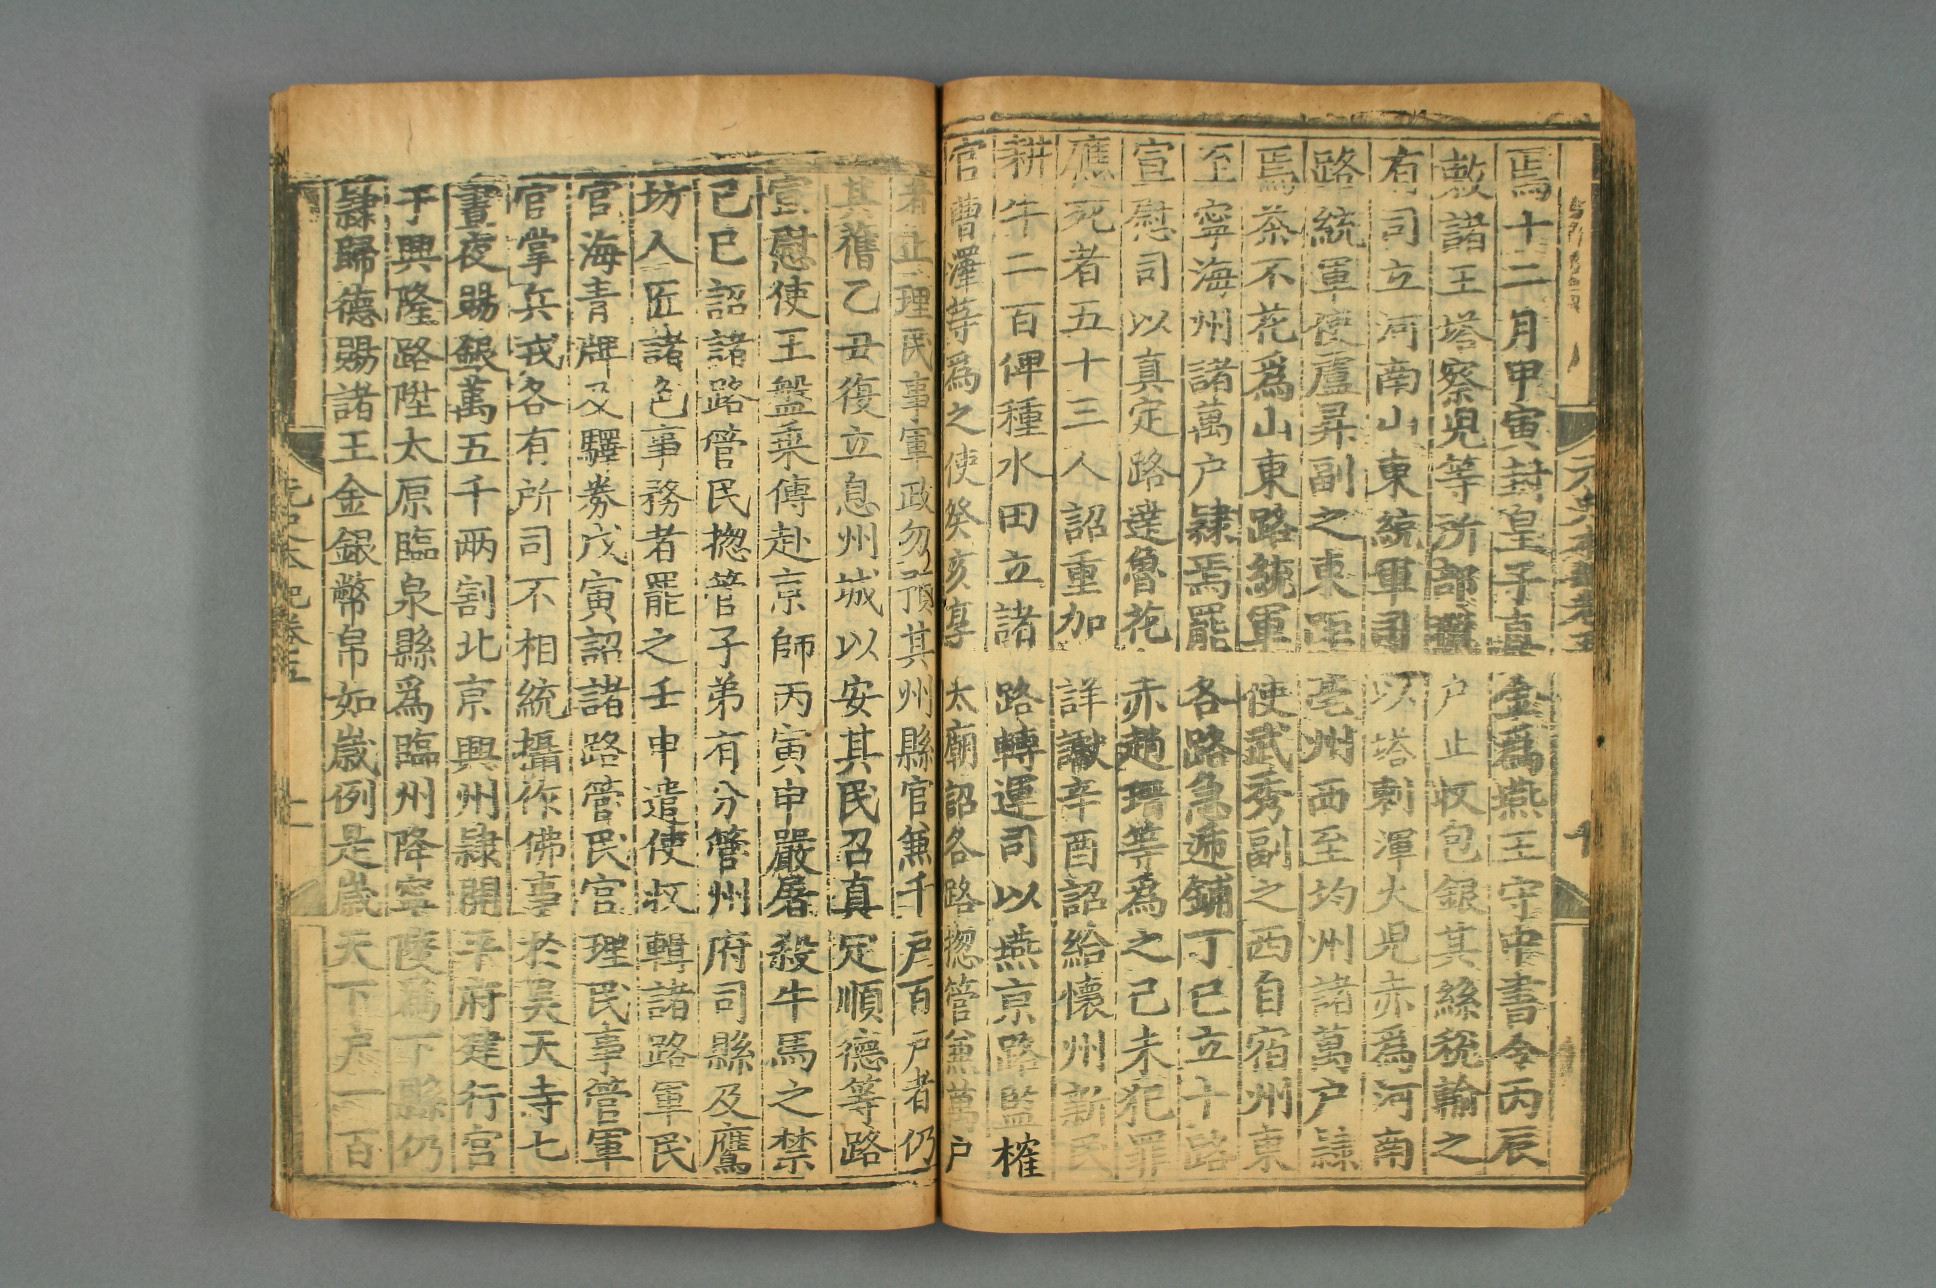 焉十二月甲寅封皇子真金爲燕王守中書令丙辰
敕諸王塔察兒等所部獵户止收包銀其絲稅輸之
有司立河南山東統軍司以塔剌渾火兒赤爲河南
路統軍使盧昇副之東距亳州西至均州諸萬户隸
焉茶不花爲山東路統軍使武秀副之西自宿州東
至寧海州諸萬户隸焉罷各路急遞鋪丁巳立十路
宣慰司以真定路達魯花赤趙瑨等爲之己未犯罪
應死者五十三人詔重加詳讞辛酉詔給懷州新民
耕牛二百俾種水田立諸路轉運司以燕京路監榷
官曹澤等爲之使癸亥享太廟詔各路揔管兼萬户
者止理民事軍政勿預其州縣官兼千户百户者仍
其舊乙丑復立息州城以安其民召真定順德等路
宣慰使王磐乘傳赴京師丙寅申嚴屠殺牛馬之禁
己巳詔諸路管民揔管子弟有分管州府司縣及鷹
坊人匠諸色事務者罷之壬申遣使收輯諸路軍民
官海青牌及驛劵戊寅詔諸路管民官理民事管軍
官掌兵戎各有所司不相統攝作佛事於昊天寺七
晝夜賜銀萬五千兩割北京興州隸開平府建行宫
于興隆路陞太原臨泉縣爲臨州降寧陵爲下縣仍
隸歸德賜諸王金銀幣帛如歲例是歲天下户一百
元史本紀卷五
十一